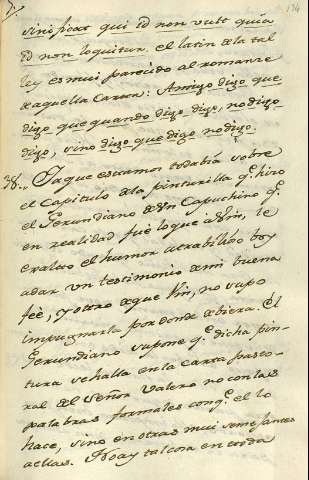 134
sino picar qui id non vult quia
id non loquitur. el latin de la tal
ley es mui parecido al romanze
de aquella Carta: Amigo digo que
digo que quando digo digo, no digo
digo, sino digo que digo no digo.
38.. Ya que estamos todabia sobre
el Capitulo de la pinturilla q.e hizo
el Gerundiano de Vn Capuchino q.e
en realidad fuè loque à Vm, le
exalto el humor atrabilioso boy
adar vn testimonio de mi buena
feè, y otro de que Vm, no supo
impugnarla por donde debiera. El
Gerundiano supone q.e dicha pin-
tura se halla en la carta pasto-
ral del Señor Valero no con las
palabras formales conq.e el lo
hace, sino en otras mui semejantes
a ellas. No ay tal cosa en toda